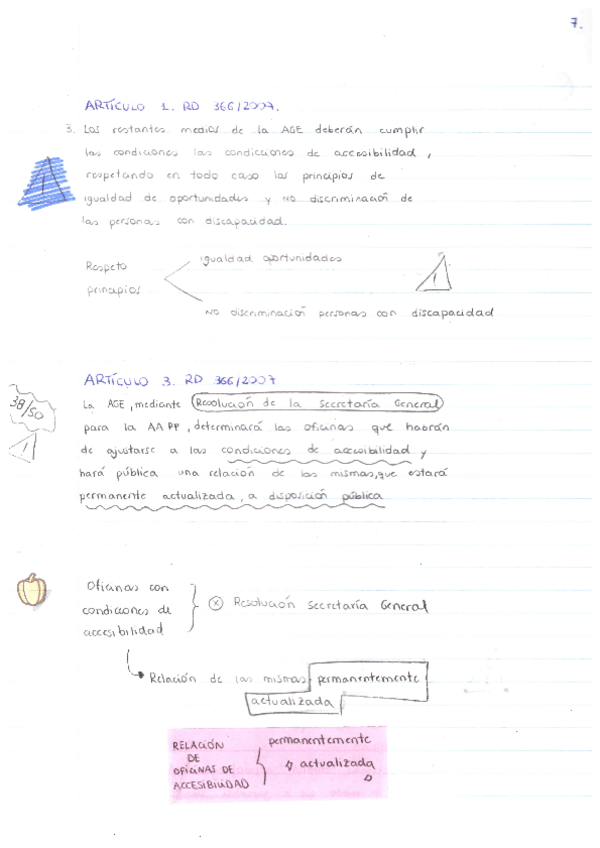 7.
ARTÍCULO 1. RD 366/2007.
3. Los restantes medios de la AGE deberán cumplir
las condiciones las condiciones de accesibilidad,
respetando en todo caso los principios de
igualdad de oportunidades y no discriminación de
las personas con discapacidad.
Respeto
principios
igualdad oportunidades
NO discriminación personas con discapacidad
ARTÍCULO 3. RD 366/2007
38/50
La AGE, mediante Resolución de la Secretaría General
para la AAPP, determinará las oficinas que habrán
de ajustarse a las condiciones de accesibilidad y
hará pública una relación de las mismas, que estará
permanente actualizada, a disposición pública
Oficinas con
condiciones de
accesibilidad
Resolución Secretaría General
Relación de las mismas permanentemente
actualizada
RELACIÓN
DE
OFICINAS DE
ACCESIBILIDAD
permanentemente
actualizada